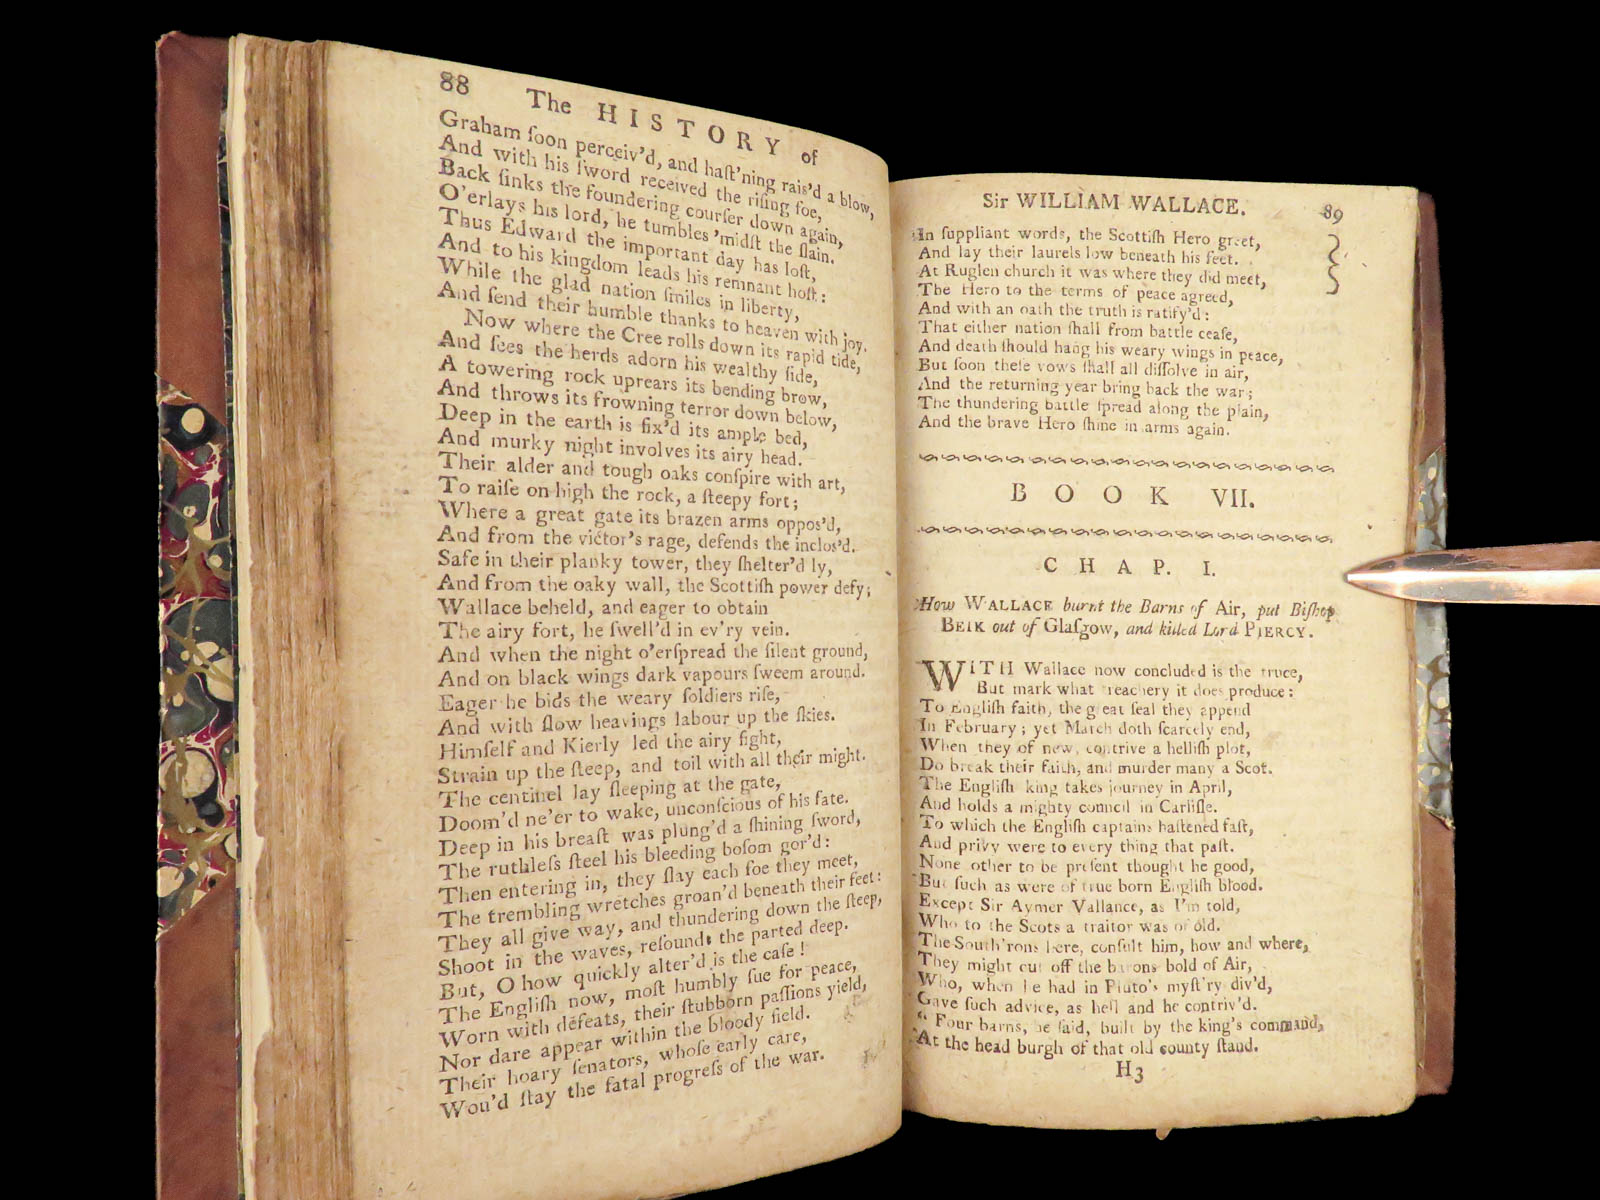 88 The HISTORY of
Graham ſoon perceiv'd, and haſt'ning rais'd a blow,
And with his ſword received the riſing foe,
Back ſinks the foundering courſer down again,
O'erlays his lord, he tumbles 'midſt the ſlain.
Thus Edward the important day has loſt,
And to his kingdom leads his remnant hoſt:
While the glad nation ſmiles in liberty,
And ſend their humble thanks to heaven with joy.
Now where the Cree rolls down its rapid tide,
And ſees the herds adorn his wealthy ſide,
A towering rock uprears its bending brow,
And throws its frowning terror down below,
Deep in the earth is fix'd its ample bed,
And murky night involves its airy head.
Their alder and tough oaks conſpire with art,
To raiſe on high the rock, a ſteepy fort;
Where a great gate its brazen arms oppos'd,
And from the victor's rage, defends the inclos'd.
Safe in their planky tower, they ſhelter'd ly,
And from the oaky wall, the Scottiſh power defy;
Wallace beheld, and eager to obtain
The airy fort, he ſwell'd in ev'ry vein.
And when the night o'erſpread the ſilent ground,
And on black wings dark vapours ſweem around.
Eager he bids the weary ſoldiers riſe,
And with ſlow heavings labour up the ſkies.
Himſelf and Kierly led the airy fight,
Strain up the ſteep, and toil with all their might.
The centinel lay ſleeping at the gate,
Doom'd ne'er to wake, unconſcious of his fate.
Deep in his breaſt was plung'd a ſhining ſword,
The ruthleſs ſteel his bleeding boſom gor'd:
Then entering in, they ſlay each foe they meet,
The trembling wretches groan'd beneath their feet:
They all give way, and thundering down the ſteep,
Shoot in the waves, reſounds the parted deep.
But, O how quickly alter'd is the caſe!
The Engliſh now, moſt humbly ſue for peace,
Worn with defeats, their ſtubborn paſſions yield,
Nor dare appear within the bloody field.
Their hoary ſenators, whoſe early care,
Wou'd ſtay the fatal progreſs of the war.
Sir WILLIAM WALLACE. 89
In ſuppliant words, the Scottiſh Hero greet,
And lay their laurels low beneath his feet.
At Ruglen church it was where they did meet,
The Hero to the terms of peace agreed,
And with an oath the truth is ratify'd:
That either nation ſhall from battle ceaſe,
And death ſhould hang his weary wings in peace,
But ſoon theſe vows ſhall all diſſolve in air,
And the returning year bring back the war;
The thundering battle ſpread along the plain,
And the brave Hero ſhine in arms again.
BOOK VII.
CHAP. I.
How WALLACE burnt the Barns of Air, put Biſhop
BEIK out of Glaſgow, and killed Lord PIERCY.
WITH Wallace now concluded is the truce,
But mark what treachery it does produce:
To Engliſh faith, the great ſeal they append
In February; yet March doth ſcarcely end,
When they of new, contrive a helliſh plot,
Do break their faith, and murder many a Scot.
The Engliſh king takes journey in April,
And holds a mighty council in Carliſle.
To which the Engliſh captains haſtened faſt,
And privy were to every thing that paſt.
None other to be preſent thought he good,
But ſuch as were of true born Engliſh blood.
Except Sir Aymer Vallance, as I'm told,
Who to the Scots a traitor was of old.
The South'rons here, conſult him, how and where,
They might cut off the barons bold of Air,
Who, when he had in Pluto's myſt'ry div'd,
Gave ſuch advice, as hell and he contriv'd.
" Four barns, he ſaid, built by the king's command,
At the head burgh of that old county ſtand.
H3